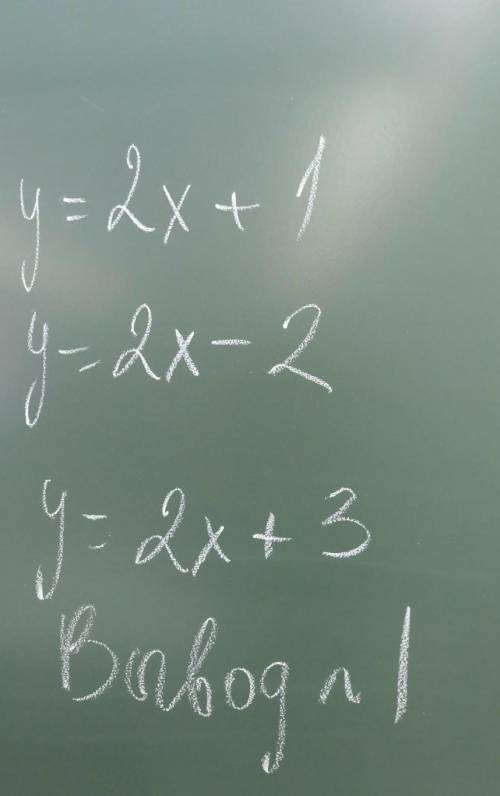 y = 2x + 1
y = 2x - 2
y = 2x + 3
Вывод 1